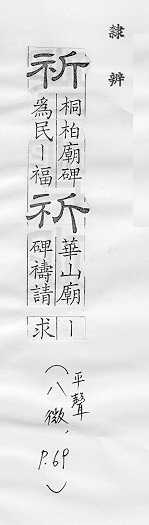 隸辨
祈
桐柏廟碑
為民｜福
祈
華山廟｜
碑禱請求
平聲
(八微，P.69)